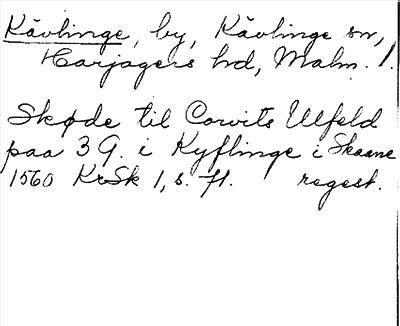 Kävlinge, by, Kävlinge sn,
Harjagers hd, Malm. l.
Skøde til Corvits Ulfeld
paa 3 G. i Kyflinge i Skaane
1560 KrSk 1, s. 71. regest.